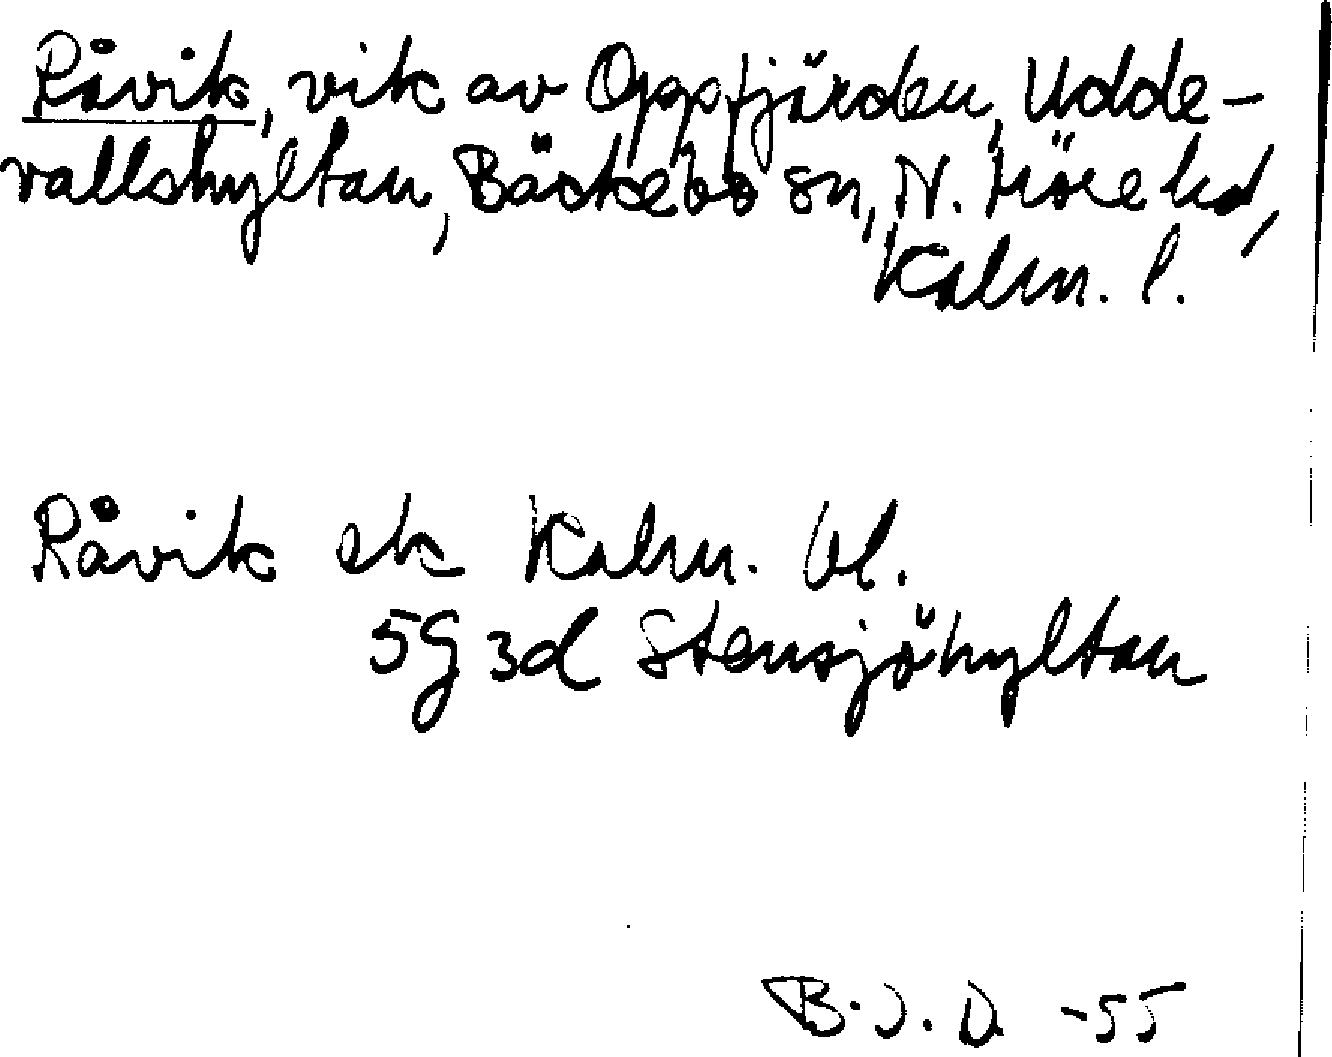 Råvik, vik av Oppfjärden, Udde-
vallshyltan, Bäckebo sn, N. Möre hd,
Kalm. l.
Råvik ek Kalm. bl.
5G 3d Stensjöhyltan
B.J.D. -55